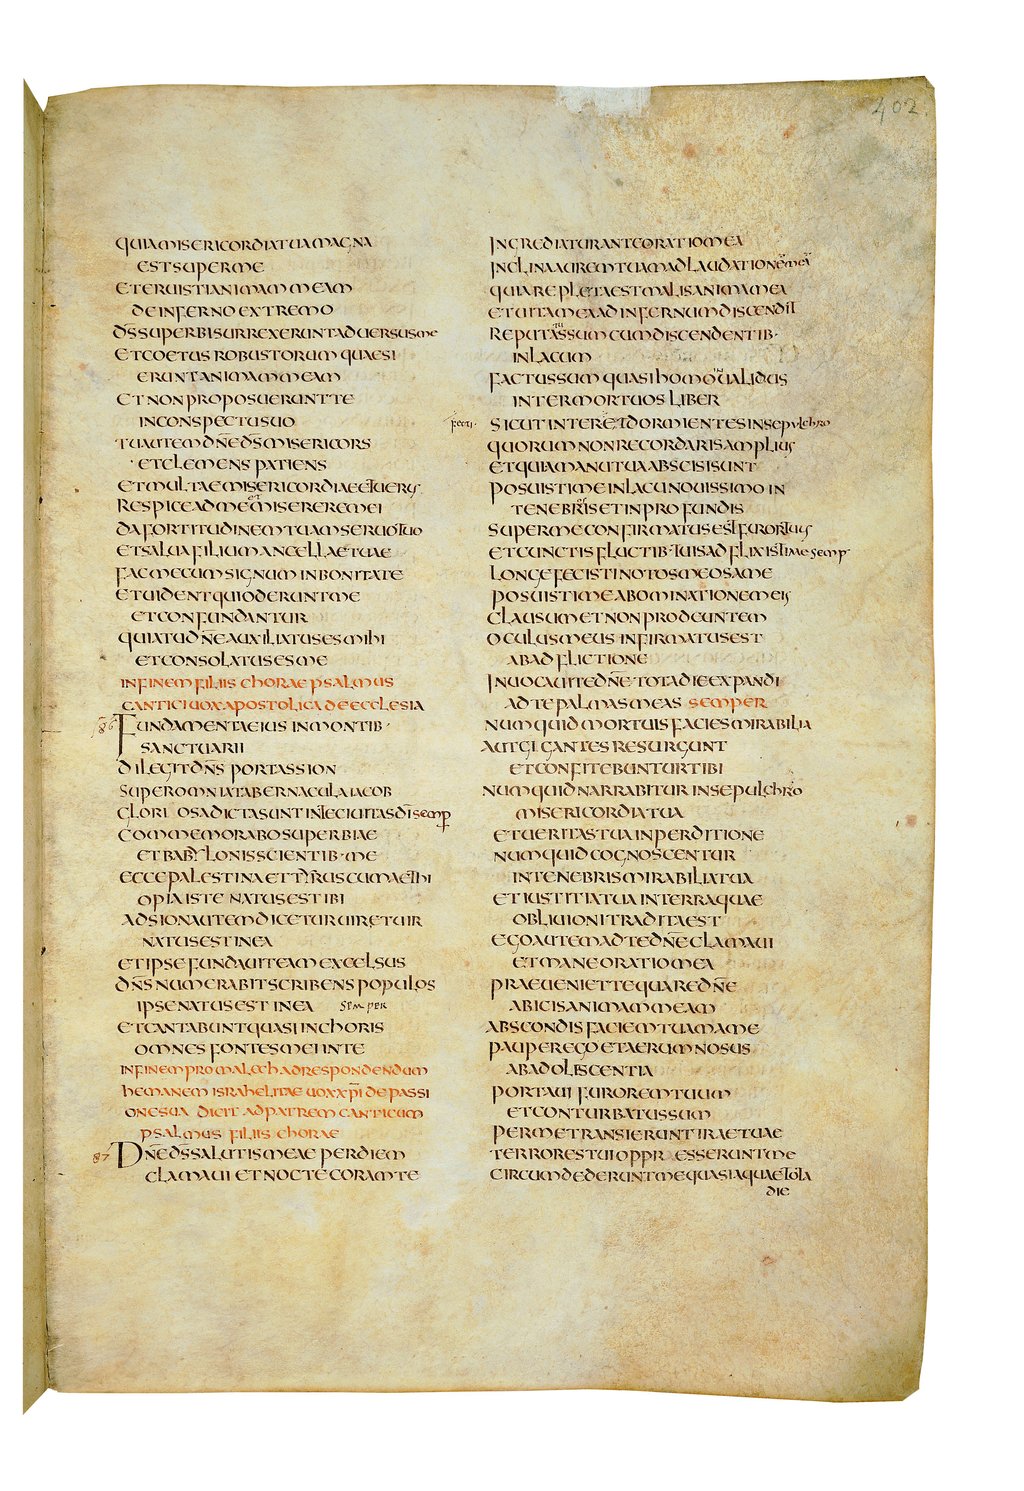 402
QUIA MISERICORDIA TUA MAGNA
EST SUPER ME
ET ERUISTI ANIMAM MEAM
DE INFERNO EXTREMO
D̄S SUPERBI SURREXERUNT ADUERSUS ME
ET COETUS ROBUSTORUM QUAESI
ERUNT ANIMAM MEAM
ET NON PROPOSUERUNT TE
IN CONSPECTU SUO
TU AUTEM DN̄E D̄S MISERICORS
ET CLEMENS PATIENS
ET MULTAE MISERICORDIAE ET UERUS
RESPICE AD ME ET MISERERE MEI
DA FORTITUDINEM TUAM SERUO TUO
ET SALUA FILIUM ANCELLAE TUAE
FAC MECUM SIGNUM IN BONITATE
ET UIDENT QUI ODERUNT ME
ET CONFUNDANTUR
QUIA TU DN̄E AUXILIATUS ES MIHI
ET CONSOLATUS ES ME
IN FINEM FILIIS CHORAE PSALMUS
CANTICI UOX APOSTOLICA DE ECCLESIA
86 FUNDAMENTA EIUS IN MONTIB·
SANCTUARII
DILEGIT DN̄S PORTAS SION
SUPER OMNIA TABERNACULA IACOB
GLORIOSA DICTA SUNT IN TE CIUITAS D̄I SEMP
COMMEMORABO SUPERBIAE
ET BABYLONIS SCIENTIB· ME
ECCE PALESTINA ET TYRUS CUM AETHI
OPIA ISTE NATUS EST IBI
AD SION AUTEM DICETUR UIR ET UIR
NATUS EST IN EA
ET IPSE FUNDAUIT EAM EXCELSUS
DN̄S NUMERABIT SCRIBENS POPULOS
IPSE NATUS EST IN EA SEMPER
ET CANTABUNT QUASI IN CHORIS
OMNES FONTES MEI IN TE
IN FINEM PRO MALECH AD RESPONDENDUM
HEMANEM ISRAHELITAE UOX XP̄I DE PASSI
ONE SUA DICIT AD PATREM CANTICUM
PSALMUS FILIIS CHORAE
87 DN̄E D̄S SALUTIS MEAE PER DIEM
CLAMAUI ET NOCTE CORAM TE
INGREDIATUR ANTE ORATIO MEA
INCLINA AUREM TUAM AD LAUDATIONEM MEA
QUIA REPLETA EST MALIS ANIMA MEA
ET UITA MEA AD INFERNUM DISCENDIT
REPUTATUS SUM CUM DISCENDENTIB·
IN LACUM
FACTUS SUM QUASI HOMO INUALIDUS
INTER MORTUOS LIBER
SICUT INTERFECTI ET DORMIENTES IN SEPULCHRO
QUORUM NON RECORDARIS AMPLIUS
ET QUIA MANU TUA ABSCISI SUNT
POSUISTI ME IN LACU NOUISSIMO IN
TENEBRIS ET IN PROFUNDIS
SUPER ME CONFIRMATUS EST FUROR TUUS
ET CUNCTIS FLUCTIB· TUIS ADFLIXISTI ME SEMP
LONGE FECISTI NOTOS MEOS A ME
POSUISTI ME ABOMINATIONEM EIS
CLAUSUM ET NON PRODEUNTEM
OCULUS MEUS INFIRMATUS EST
AB ADFLICTIONE
INUOCAUI TE DN̄E TOTA DIE EXPANDI
AD TE PALMAS MEAS SEMPER
NUMQUID MORTUIS FACIES MIRABILIA
AUT GIGANTES RESURGUNT
ET CONFITEBUNTUR TIBI
NUMQUID NARRABITUR IN SEPULCHRO
MISERICORDIA TUA
ET UERITAS TUA IN PERDITIONE
NUMQUID COGNOSCENTUR
IN TENEBRIS MIRABILIA TUA
ET IUSTITIA TUA IN TERRA QUAE
OBLIUIONI TRADITA EST
EGO AUTEM AD TE DN̄E CLAMAUI
ET MANE ORATIO MEA
PRAEUENIET TE QUARE DN̄E
ABICIS ANIMAM MEAM
ABSCONDIS FACIEM TUAM A ME
PAUPER EGO ET AERUMNOSUS
AB ADOLISCENTIA
PORTAUI FUROREM TUUM
ET CONTURBATUS SUM
PER ME TRANSIERUNT IRAE TUAE
TERRORES TUI OPPRESSERUNT ME
CIRCUMDEDERUNT ME QUASI AQUAE TOTA
DIE